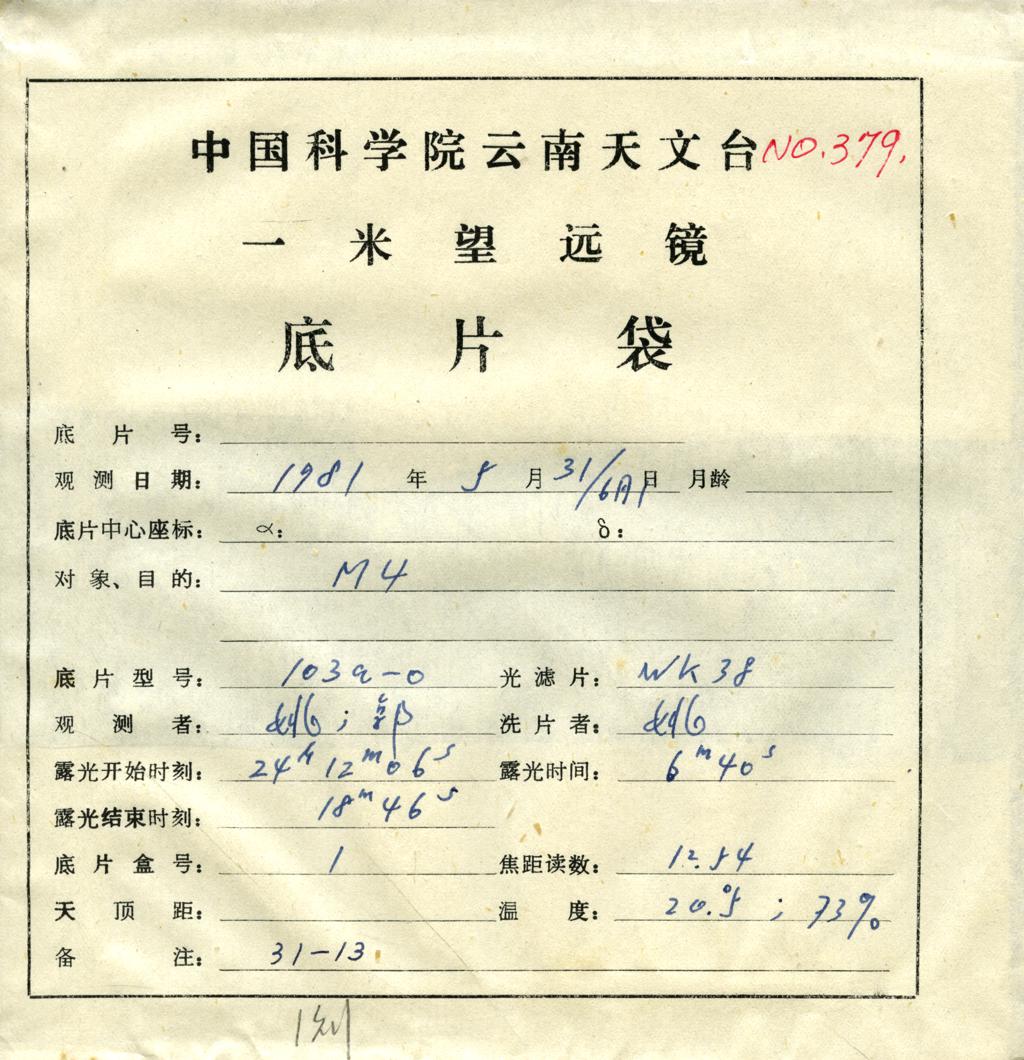 中国科学院云南天文台 NO.379.
一米望远镜
底片袋
底片号：
观测日期： 1981 年 5 月 31/6月1 日 月龄
底片中心座标： α： δ：
对象、目的： M4
底片型号： 103a-O 光滤片： WK38
观测者： 洗片者：
露光开始时刻： 24h 12m 06s 露光时间： 6m 40s
露光结束时刻： 18m 46s
底片盒号： 1 焦距读数： 12.54
天顶距： 温度： 20.°5 ; 73%
备注： 31-13